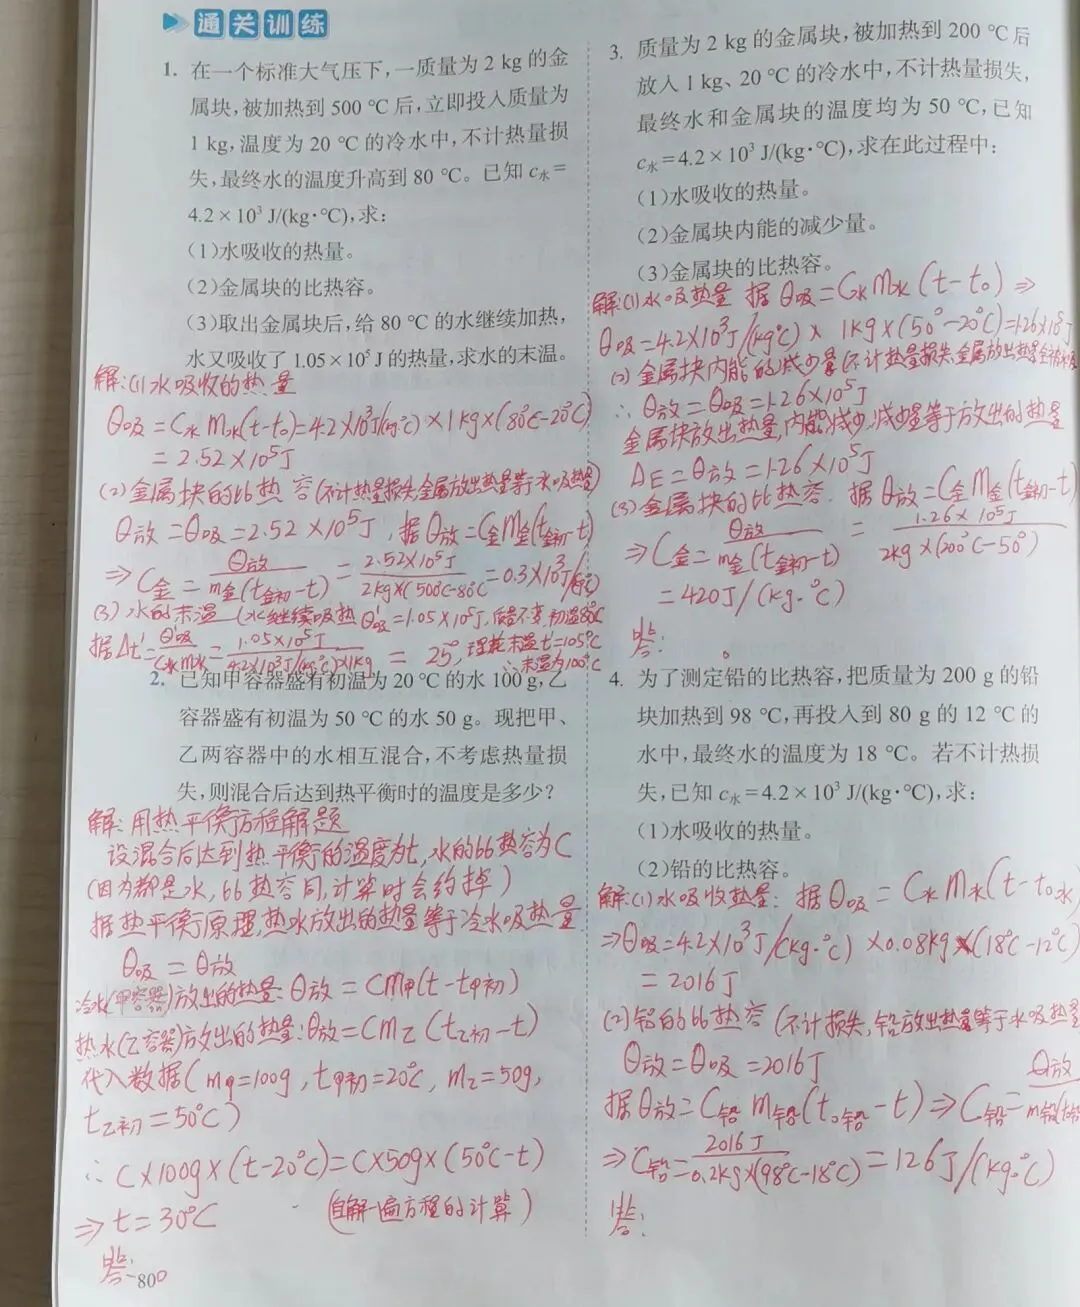 通关训练
1. 在一个标准大气压下,一质量为 2 kg 的金
属块,被加热到 500 ℃ 后,立即投入质量为
1 kg,温度为 20 ℃ 的冷水中,不计热量损
失,最终水的温度升高到 80 ℃。已知 c水=
4.2×10³ J/(kg·℃),求:
(1)水吸收的热量。
(2)金属块的比热容。
(3)取出金属块后,给 80 ℃ 的水继续加热,
水又吸收了 1.05×10⁵ J 的热量,求水的末温。
解:(1)水吸收的热量
Q吸=C水m水(t-t₀)=4.2×10³J/(kg·℃)×1kg×(80℃-20℃)
=2.52×10⁵J
(2)金属块的比热容(不计热量损失,金属放出热量等于水吸热量)
Q放=Q吸=2.52×10⁵J,据Q放=C金m金(t金初-t)
⇒C金=Q放/m金(t金初-t)=2.52×10⁵J/2kg×(500℃-80℃=0.3×10³J/(kg·℃)
(3)水的末温(水继续吸热Q'吸=1.05×10⁵J,质量不变,初温80℃
据Δt'=Q'吸/C水m水=1.05×10⁵J/4.2×10³J/(kg·℃)×1kg=25°,理论末温t'=105℃
∴末温为100℃
2. 已知甲容器盛有初温为 20 ℃ 的水 100 g,乙
容器盛有初温为 50 ℃ 的水 50 g。现把甲、
乙两容器中的水相互混合,不考虑热量损
失,则混合后达到热平衡时的温度是多少?
解:用热平衡方程解题
设混合后达到热平衡的温度为t,水的比热容为C
(因为都是水,比热容同,计算时会约掉)
据热平衡原理,热水放出的热量等于冷水吸热量
Q吸=Q放
冷水(甲容器)放出的热量:Q放=Cm甲(t-t甲初)
热水(乙容器)放出的热量:Q放=Cm乙(t乙初-t)
代入数据(m甲=100g,t甲初=20℃,m乙=50g,
t乙初=50℃)
∴C×100g×(t-20℃)=C×50g×(50℃-t)
⇒t=30℃ (自解一遍方程的计算)
答:
80
3. 质量为 2 kg 的金属块,被加热到 200 ℃ 后
放入 1 kg、20 ℃ 的冷水中,不计热量损失,
最终水和金属块的温度均为 50 ℃,已知
c水=4.2×10³ J/(kg·℃),求在此过程中:
(1)水吸收的热量。
(2)金属块内能的减少量。
(3)金属块的比热容。
解:(1)水吸热量 据Q吸=C水m水(t-t₀)⇒
Q吸=4.2×10³J/(kg℃)×1kg×(50°-20℃)=1.26×10⁵J
(2)金属块内能的减少量(不计热量损失,金属放出热量全被水吸
∴Q放=Q吸=1.26×10⁵J
金属块放出热量,内能减少,减少量等于放出的热量
ΔE=Q放=1.26×10⁵J
(3)金属块的比热容.据Q放=C金m金(t金初-t)
⇒C金=Q放/m金(t金初-t)=1.26×10⁵J/2kg×(200℃-50°)
=420J/(kg·℃)
答:
4. 为了测定铅的比热容,把质量为 200 g 的铅
块加热到 98 ℃,再投入到 80 g 的 12 ℃ 的
水中,最终水的温度为 18 ℃。若不计热损
失,已知 c水=4.2×10³ J/(kg·℃),求:
(1)水吸收的热量。
(2)铅的比热容。
解:(1)水吸收热量:据Q吸=C水m水(t-t₀水)
⇒Q吸=4.2×10³J/(kg·℃)×0.08kg×(18℃-12℃)
=2016J
(2)铅的比热容(不计损失,铅放出热量等于水吸热量
Q放=Q吸=2016J
据Q放=C铅m铅(t₀铅-t)⇒C铅=Q放/m铅(t₀铅
⇒C铅=2016J/0.2kg×(98℃-18℃)=126J/(kg·℃)
答: